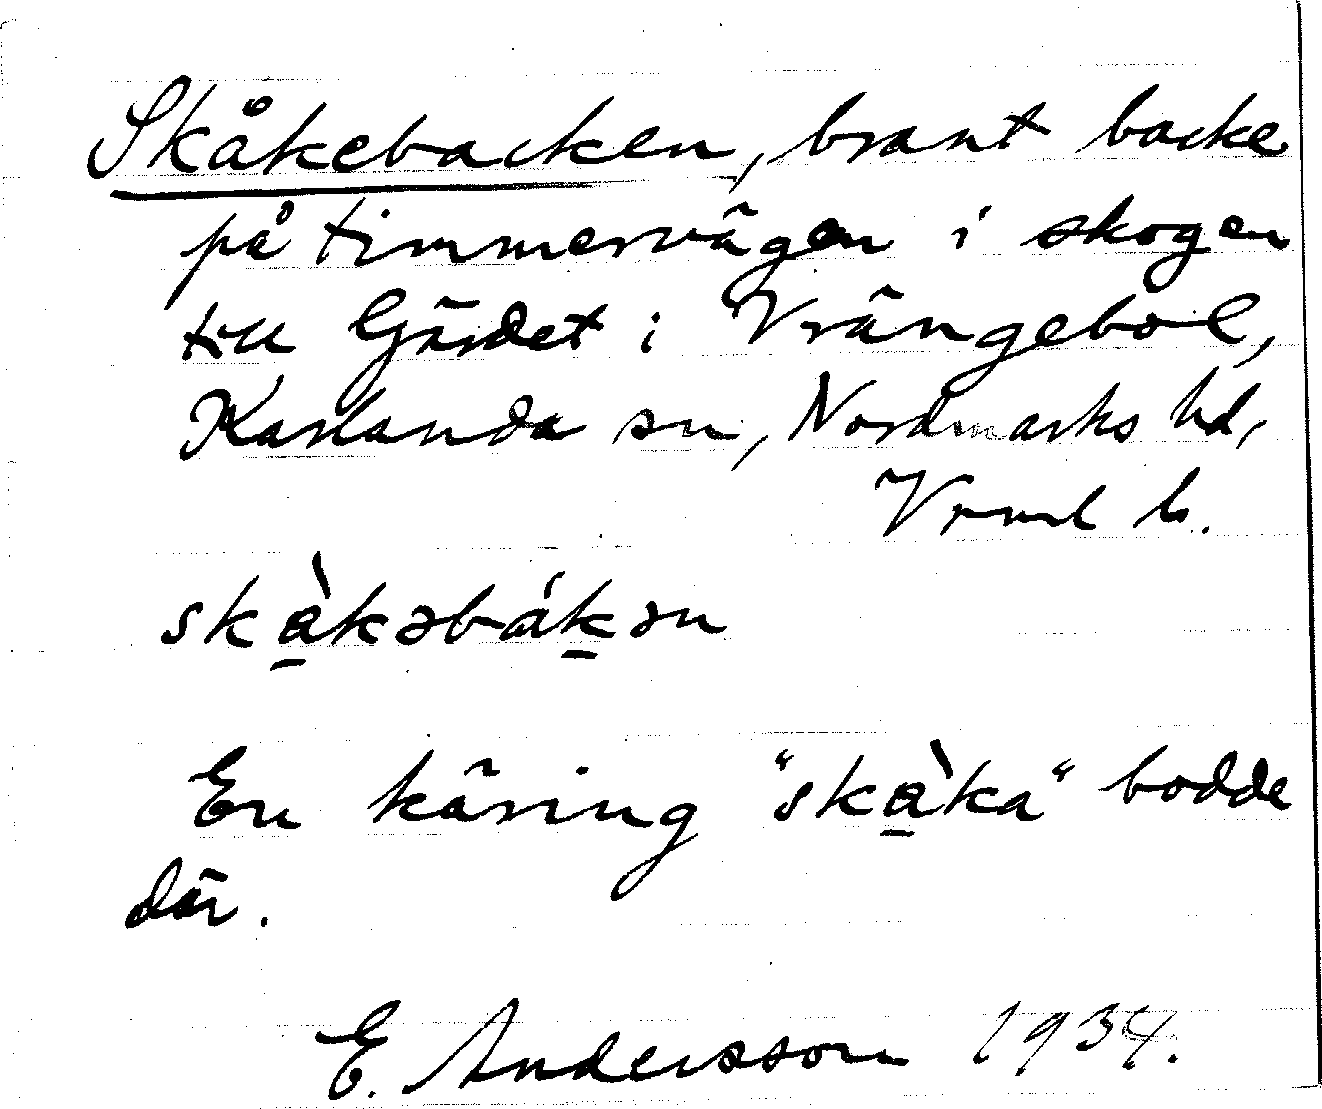 Skåkebacken, brant backe
på timmervägen i skogen
till Gärdet i Vrängebol,
Karlanda sn, Nordmarks hd,
Vrml b.
skа̱̀kəbák̲ən
En käring "skà̱ka" bodde
där.
E. Andersson 1934.